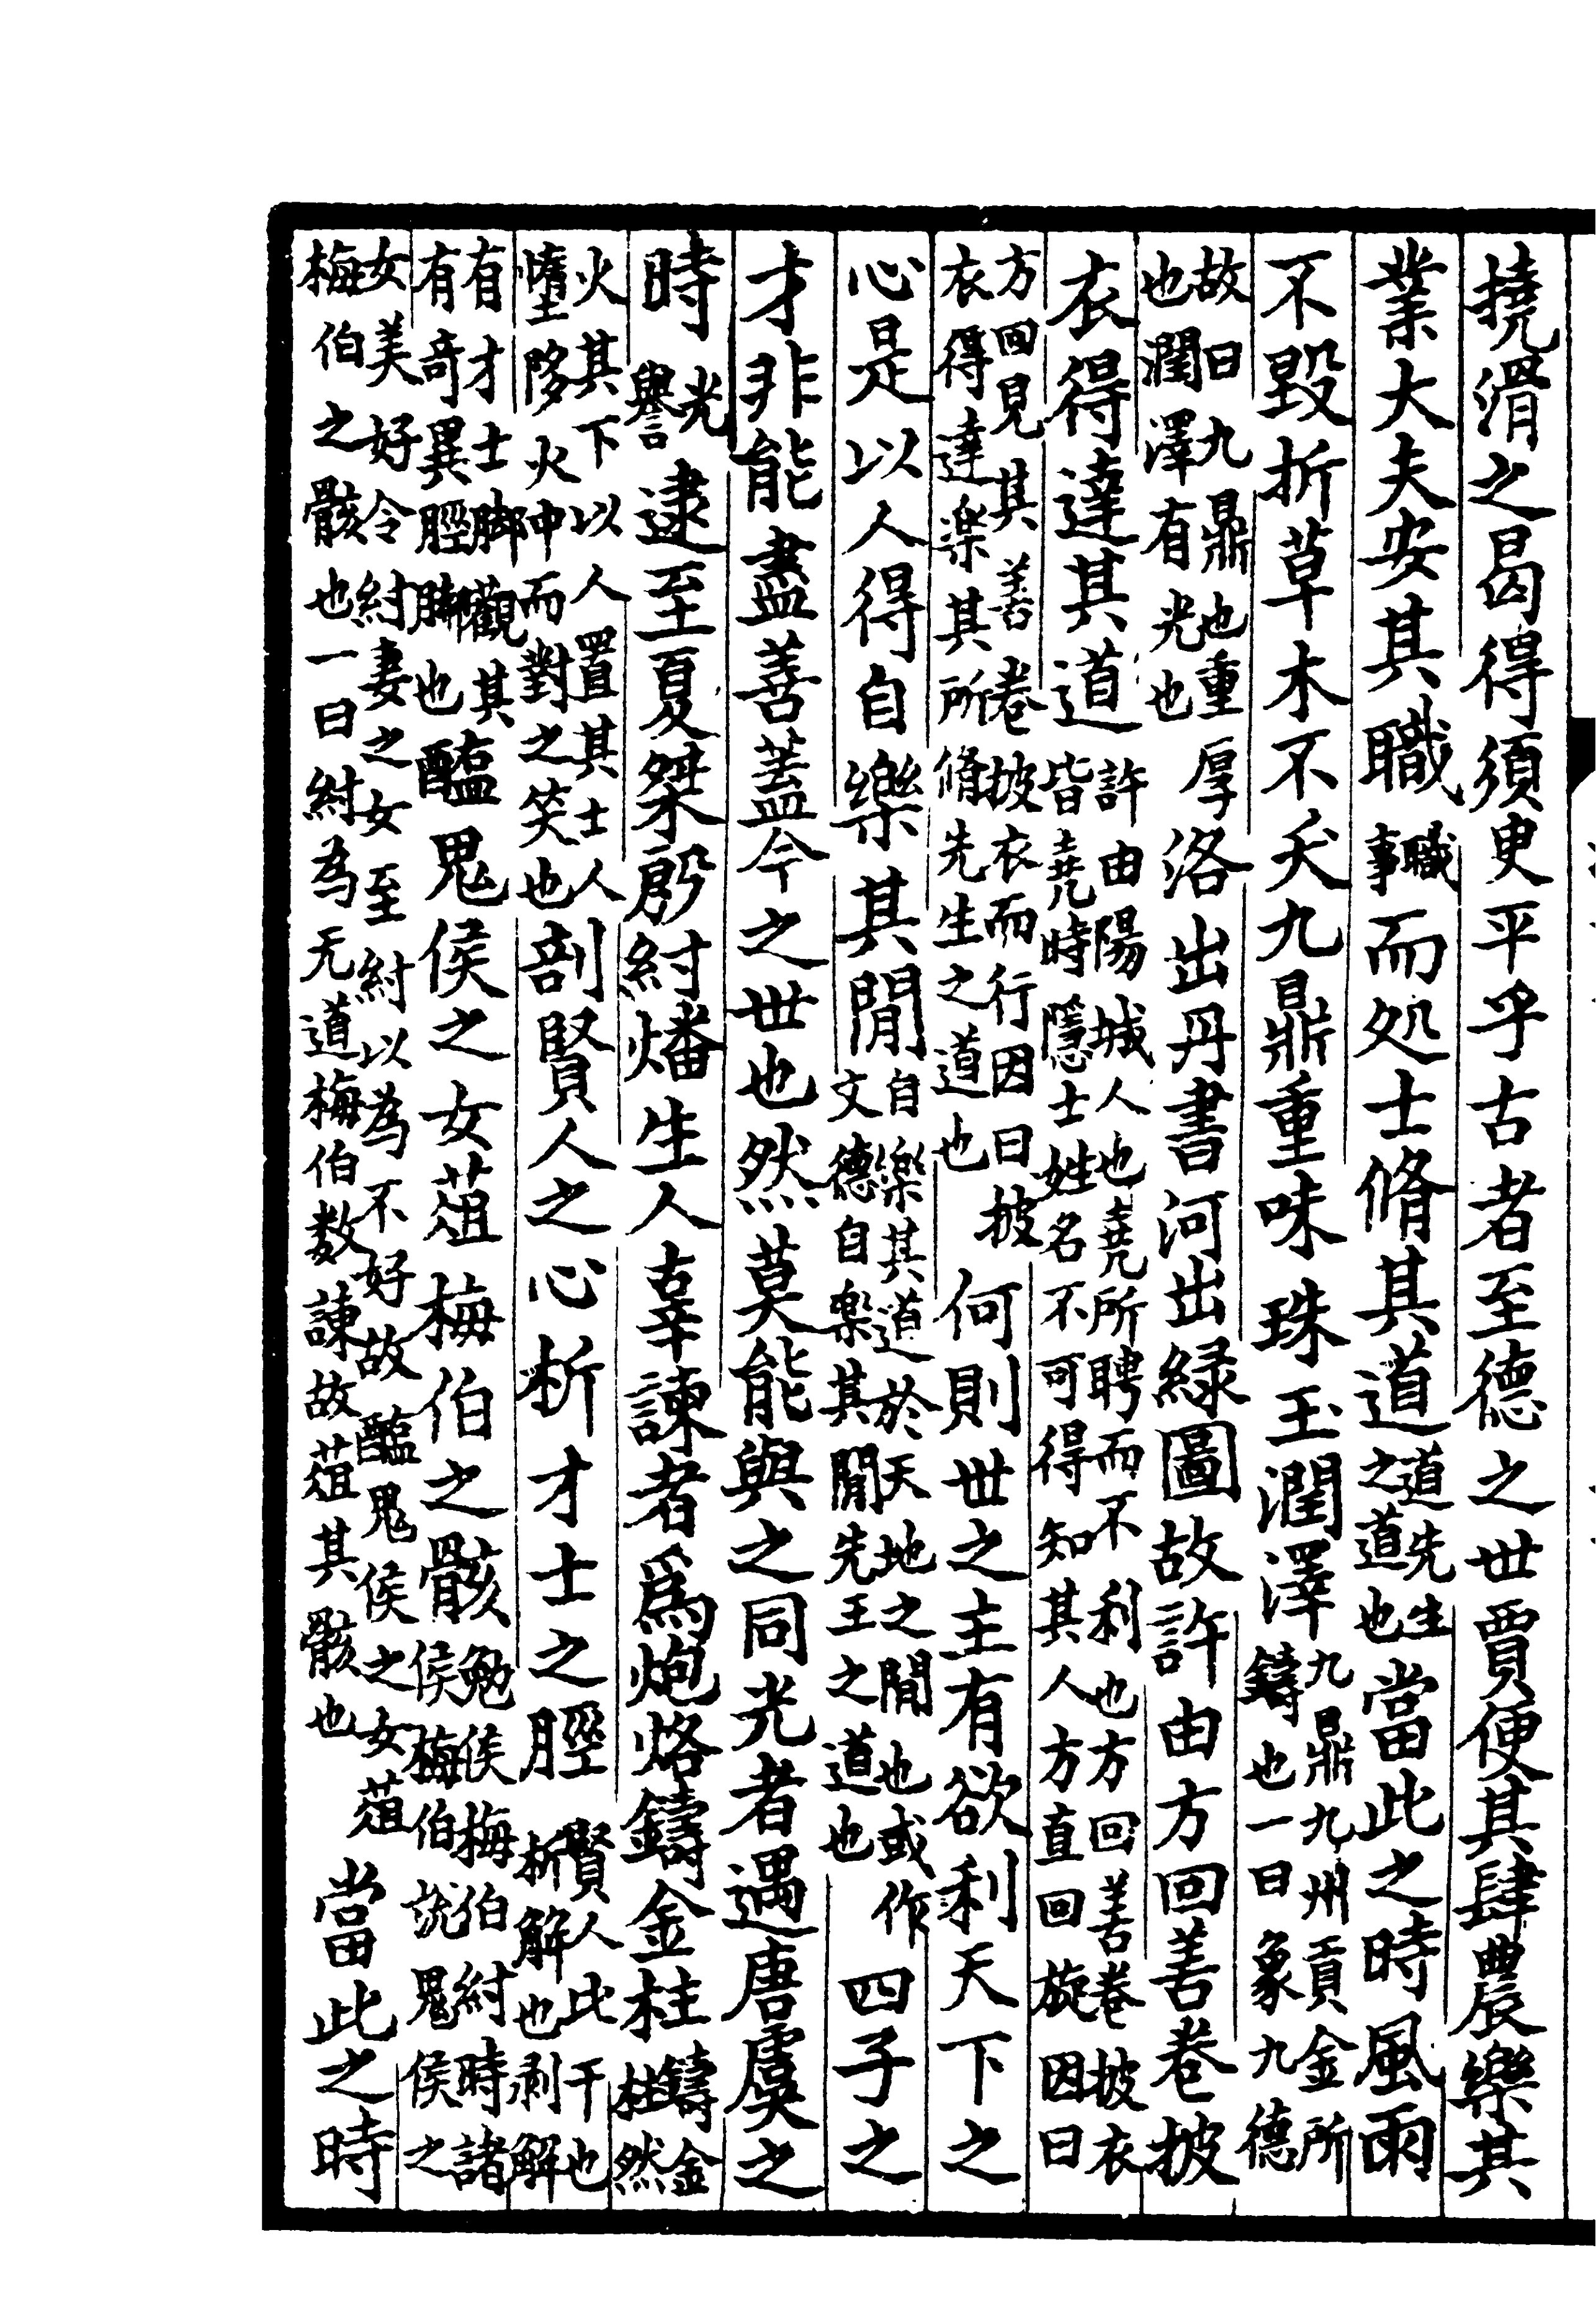 撓滑之曷得須臾平乎古者至德之世賈便其肆農樂其
業大夫安其職職事而処士脩其道道先生之道也當此之時風雨
不毀折草木不夭九鼎重味珠玉潤澤九鼎九州貢金所鑄也一曰象九德
故曰九鼎也重厚也潤澤有光也洛出丹書河出綠圖故許由方回善卷披
衣得達其道許由陽城人也堯所聘而不利也方回善卷披衣皆堯時隱士姓名不可得知其人方直回旋因曰
方回見其善卷披衣而行因曰披衣得達楽其所脩先生之道也何則世之主有欲利天下之
心是以人得自樂其閒自樂其道於天地之間也或作文德自楽其閒先王之道也四子之
才非能盡善蓋今之世也然莫能與之同光者遇唐虞之
時光譽逮至夏桀殷紂燔生人辜諫者爲炮烙鑄金柱鑄金柱然
火其下以人置其士人墮陊火中而對之笑也剖賢人之心析才士之脛賢人比干也析解也剝解
有才士脚觀其有奇異脛脚也醢鬼侯之女葅梅伯之骸勉侯梅伯紂時諸侯梅伯說鬼侯之
女美好令紂妻之女至紂以為不好故醢鬼侯之女葅梅伯之骸也一曰紂為无道梅伯数諫故葅其骸也當此之時